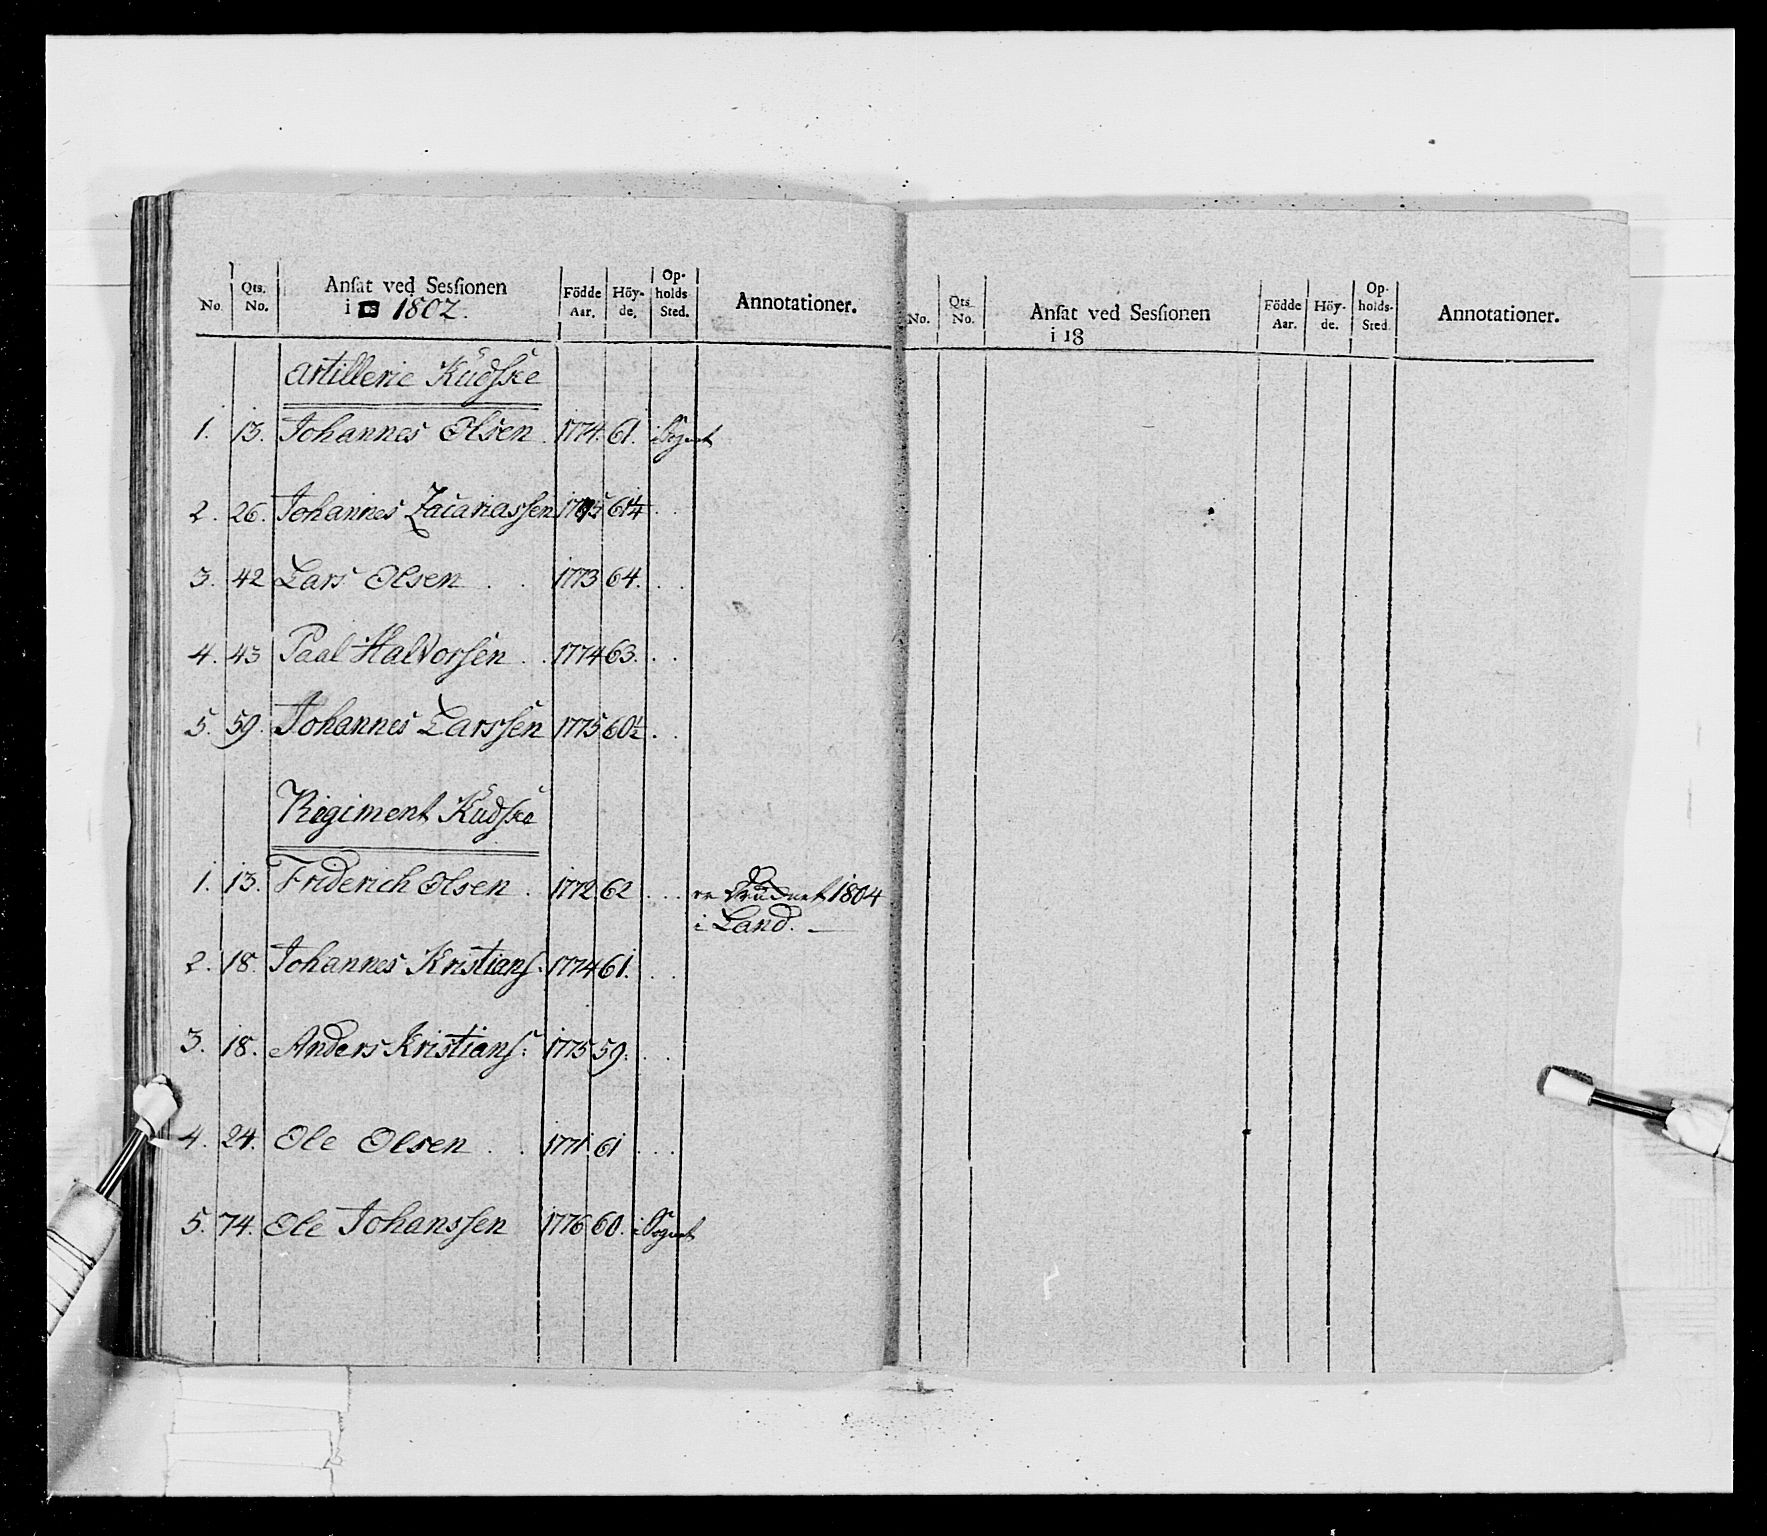 No. Qts. No. Ansat ved Sessionen i 1802. Födde Aar. Höyde. Opholds Sted. Annotationer.
Artillerie Kudske
1. 13. Johannes Olsen . 1774. 61. i Sognet
2. 26. Johannes Zacariassen 61¼ . .
3. 42 Lars Olsen . . 1773 64. . .
4. 43 Paal Halvorsen . . 1774 63. . .
5. 59. Johannes Larssen 1775 60½ . .
Regiment Kudske
1. 13. Friderich Olsen . 1772 62 . . . 1804
i Land. —
2. 18. Johannes Kristians: 1774 61. . .
3. 18. Anders Kristians: 1775 59. . .
4. 24. Ole Olsen . . 1771 61 . . .
5. 74. Ole Johanssen 1776 60. i Sognet
No. Qts No. Ansat ved Sessionen i 18 Födde Aar. Höyde. Opholds-Sted. Annotationer.